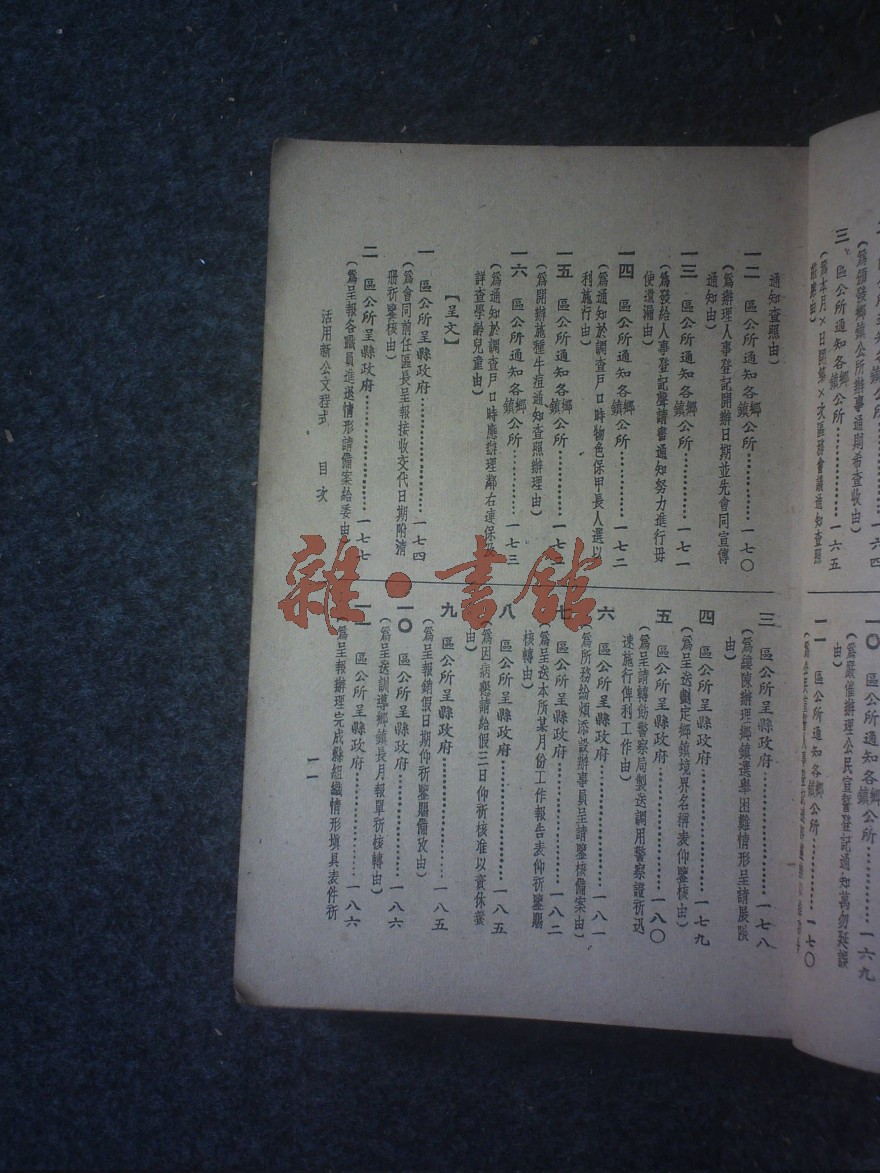 三 區公所通知各鄉鎮公所……一六五
(為本月×日開第×次區務會議通知查照
(為頒發鄉鎮公所辦事通則希查收由)
一〇 區公所通知各鄉鎮公所……一六九
(為嚴催辦理公民宣誓登記通知萬勿延誤
由)
一一 區公所通知各鄉鎮公所……一七〇
通知查照由)
一二 區公所通知各鄉鎮公所……一七〇
(為辦理人事登記開辦日期並先會同宣傳
通知由)
一三 區公所通知各鄉鎮公所……一七一
(為發給人事登記聲請書通知努力進行毋
使遺漏由)
一四 區公所通知各鄉鎮公所……一七二
(為通知於調查戶口時物色保甲長人選以
利施行由)
一五 區公所通知各鄉鎮公所……一七三
(為開辦施種牛痘通知查照辦理由)
一六 區公所通知各鄉鎮公所……一七三
(為通知於調查戶口時應辦理鄰右連保及
詳查學齡兒童由)
【呈文】
一 區公所呈縣政府……一七四
(為會同前任區長呈報接收交代日期附清
冊祈鑒核由)
二 區公所呈縣政府……一七七
(為呈報各職員進退情形請備案給委由)
三 區公所呈縣政府……一七八
(為縷陳辦理鄉鎮選舉困難情形呈請展限
由)
四 區公所呈縣政府……一七九
(為呈送劃定鄉鎮境界名稱表仰鑒核由)
五 區公所呈縣政府……一八〇
(為呈請轉飭警察局製送調用警察證祈迅
速施行俾利工作由)
六 區公所呈縣政府……一八一
(為所務紛煩添設辦事員呈請鑒核備案由)
七 區公所呈縣政府……一八二
(為呈送本所某月份工作報告表仰祈鑒賜
核轉由)
八 區公所呈縣政府……一八五
(為因病懇請給假三日仰祈核准以資休養
由)
九 區公所呈縣政府……一八五
(為呈報銷假日期仰祈鑒賜備攷由)
一〇 區公所呈縣政府……一八六
(為呈送訓導鄉鎮長月報單祈核轉由)
一一 區公所呈縣政府……一八六
(為呈報辦理完成縣組織情形填具表件祈
活用新公文程式 目次
一一
雜·書館